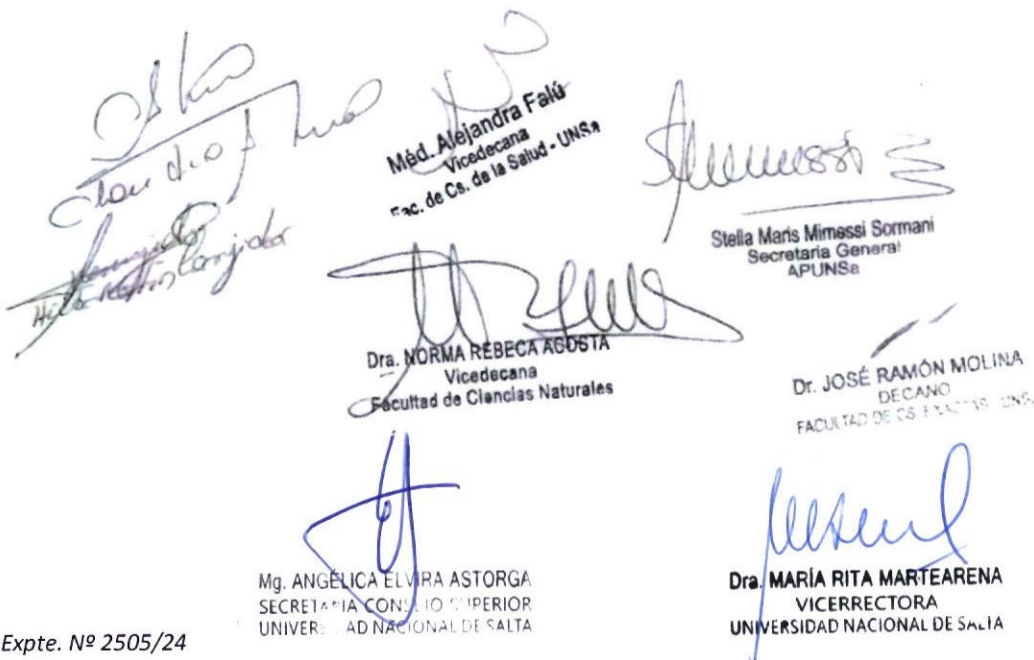 Méd. Alejandra Falú
Vicedecana
Fac. de Cs. de la Salud - UNSa
Stella Maris Mimessi Sormani
Secretaria General
APUNSa
Dra. NORMA REBECA ACOSTA
Vicedecana
Facultad de Ciencias Naturales
Dr. JOSÉ RAMÓN MOLINA
DECANO
FACULTAD DE CS. EXACTAS - UNSa
Mg. ANGÉLICA ELVIRA ASTORGA
SECRETARIA CONSEJO SUPERIOR
UNIVERSIDAD NACIONAL DE SALTA
Dra. MARÍA RITA MARTEARENA
VICERRECTORA
UNIVERSIDAD NACIONAL DE SALTA
Expte. Nº 2505/24